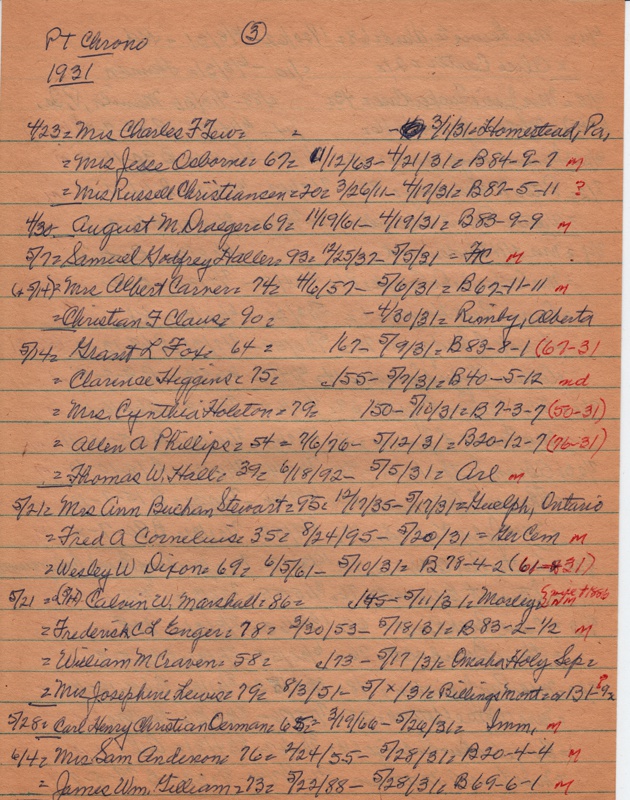 PT Chrono ③
1931
4/23 = Mrs Charles F Lew = = 3/1/31 = Homestead, Pa,
= Mrs Jesse Osborne = 67 = 1/12/63 - 4/21/31 = B84-9-7 m
= Mrs Russell Christiansen = 20 = 3/26/11 - 4/17/31 = B87-5-11 ?
4/30 = August M. Draeger = 69 = 11/19/61 - 4/19/31 = B83-9-9 m
5/7 = Samuel Godfrey Haller = 93 = 12/25/37 - 5/5/31 = FC m
(+ 5/14) = Mrs Albert Carner = 74 = 4/6/57 - 5/6/31 = B67-11-11 m
= Christian F Claus = 90 = - 4/30/31 = Rimby, Alberta
5/14 = Grant L Fox = 64 = /67 - 5/9/31 = B83-8-1 (67-31
= Clarence Higgins = 75 = /55 - 5/7/31 = B40-5-12 nd
= Mrs. Cynthia Holston = 79 = /50 - 5/10/31 = B7-3-7 (50-31)
= Allen A Phillips = 54 = 7/6/76 - 5/12/31 = B20-12-7 (76-31)
= Thomas W. Hall = 39 = 6/18/92 - 5/5/31 = Arl m
5/21 = Mrs Ann Buchan Stewart = 95 = 12/17/35 - 5/17/31 = Guelph, Ontario
= Fred A Cornelius = 35 = 8/24/95 - 5/20/31 = Ger Cem m
= Wesley W Dixon = 69 = 6/5/61 - 5/10/31 = B78-4-2 (61-31)
5/21 = Calvin W. Marshall = 86 = /45 - 5/11/31 = Mosley NM
= Frederick C L Enger = 78 = 3/30/53 - 5/18/31 = B83-2-1/2 m
= William M Craven = 58 = /73 - 5/17/31 = Omaha Holy Sep =
= Mrs Josephine Lewis = 79 = 8/3/51 - 5/x/31 = Billings Mont = or B1-9 ?
5/28 = Carl Henry Christian Oerman = 65 = 3/19/66 - 5/26/31 = Imm, m
6/4 = Mrs Sam Anderson = 76 = 2/24/55 - 5/28/31 = B20-4-4 m
= James Wm. Gilliam = 73 = 5/22/88 - 5/28/31 = B69-6-1 m